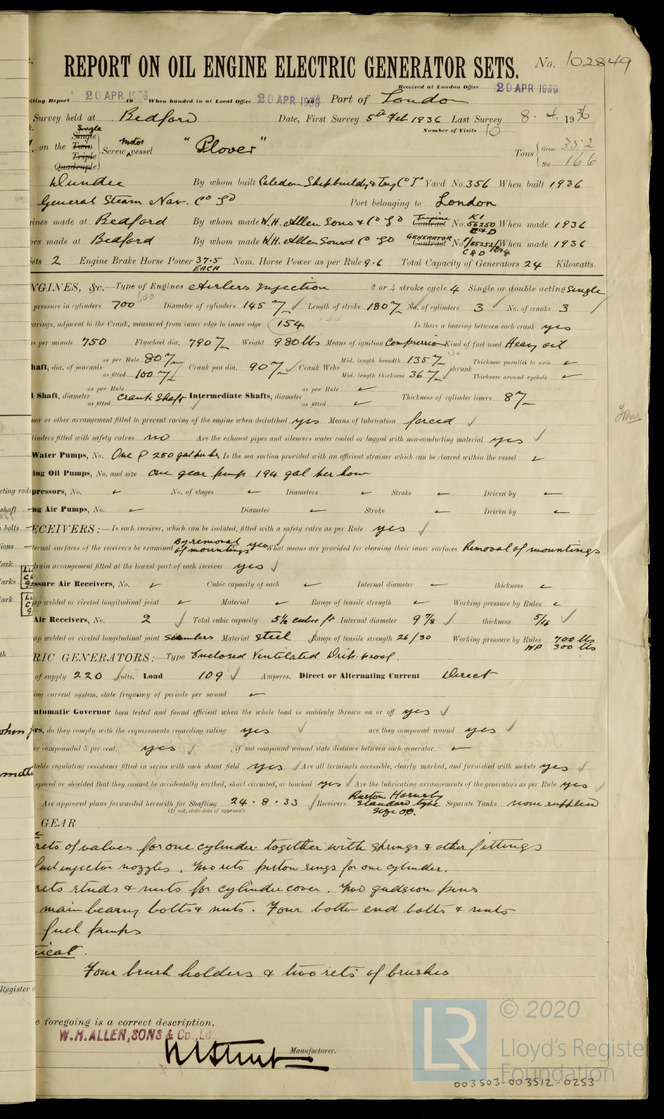 REPORT ON OIL ENGINE ELECTRIC GENERATOR SETS. No. 102849
Received at London Office 20 APR 1936
iting Report 20 APR 1936 When handed in at Local Office 20 APR 1936 Port of London
Survey held at Bedford Date, First Survey 5th Feb 1936 Last Survey 8.4.1936
Number of Visits 10
on the Single Single Twin Triple Quadruple Screw motor vessel "Plover" Tons Gross 352 Net 166
Dundee By whom built Caledon Shipbuildg & Eng Co Ld Yard No. 356 When built 1936
General Steam Nav. Co Ld Port belonging to London
ines made at Bedford By whom made W.H. Allen Sons & Co Ld Engine Contract No. K1 56250 C & D When made 1936
ors made at Bedford By whom made W.H. Allen Sons & Co Ld GENERATOR Contract No. C & D When made 1936
Sets 2 Engine Brake Horse Power 37.5 EACH Nom. Horse Power as per Rule 9.6 Total Capacity of Generators 24 Kilowatts.
NGINES, &c.—Type of Engines Airless Injection 2 or 4 stroke cycle 4 Single or double acting single
pressure in cylinders 700 Diameter of cylinders 145 Length of stroke 180 No. of cylinders 3 No. of cranks 3
earings, adjacent to the Crank, measured from inner edge to inner edge 154 Is there a bearing between each crank yes
s per minute 750 Flywheel dia. 790 Weight 980 lbs Means of ignition Compression Kind of fuel used Heavy oil
haft, dia. of journals as per Rule 80 as fitted 100 Crank pin dia. 90 Crank Webs Mid. length breadth 135 Mid. length thickness 36 shrunk Thickness parallel to axis Thickness around eyehole
l Shaft, diameter as per Rule as fitted Crank Shaft Intermediate Shafts, diameter as per Rule as fitted Thickness of cylinder liners 8
nor or other arrangement fitted to prevent racing of the engine when declutched yes Means of lubrication forced
linders fitted with safety valves no Are the exhaust pipes and silencers water cooled or lagged with non-conducting material yes
Water Pumps, No. One @ 250 gal per hr Is the sea suction provided with an efficient strainer which can be cleared within the vessel
ing Oil Pumps, No. and size One gear pump 194 gal per hour
pressors, No. No. of stages Diameters Stroke Driven by
ng Air Pumps, No. Diameter Stroke Driven by
ECEIVERS:—Is each receiver, which can be isolated, fitted with a safety valve as per Rule yes
ternal surfaces of the receivers be examined By removal of mountings yes What means are provided for cleaning their inner surfaces Removal of mountings
drain arrangement fitted at the lowest part of each receiver yes
essure Air Receivers, No. Cubic capacity of each Internal diameter thickness
ap welded or riveted longitudinal joint Material Range of tensile strength Working pressure by Rules
Air Receivers, No. 2 Total cubic capacity 5 1/2 cubic ft Internal diameter 9 7/8 thickness 5/16
ap welded or riveted longitudinal joint seamless Material Steel Range of tensile strength 26/30 Working pressure by Rules 700 lbs WP 300 lbs
RIC GENERATORS:—Type Enclosed Ventilated Drip proof.
of supply 220 volts. Load 109 Amperes. Direct or Alternating Current Direct
ing current system, state frequency of periods per second
utomatic Governor been tested and found efficient when the whole load is suddenly thrown on or off yes
rs, do they comply with the requirements regarding rating yes are they compound wound yes
er compounded 5 per cent. yes , if not compound wound state distance between each generator
table regulating resistance fitted in series with each shunt field yes Are all terminals accessible, clearly marked, and furnished with sockets yes
spaced or shielded that they cannot be accidentally earthed, short circuited, or touched yes Are the lubricating arrangements of the generators as per Rule yes
Are approved plans forwarded herewith for Shafting 24.8.33 Receivers Ruston Hornsby Standard type Separate Tanks none supplied
(If not, state date of approval)
GEAR
sets of valves for one cylinder together with springs & other fittings
fuel injector nozzles. Two sets piston rings for one cylinder.
sets studs & nuts for cylinder cover. Two gudgeon pins
main bearing bolts & nuts. Four bottom end bolts & nuts
fuel pumps
ical.
Four brush holders & two sets of brushes
e foregoing is a correct description,
W.H. ALLEN, SONS & Co., Ld
Manufacturer.
LR
© 2020
Lloyd's Register
Foundation
003503-003512-0253